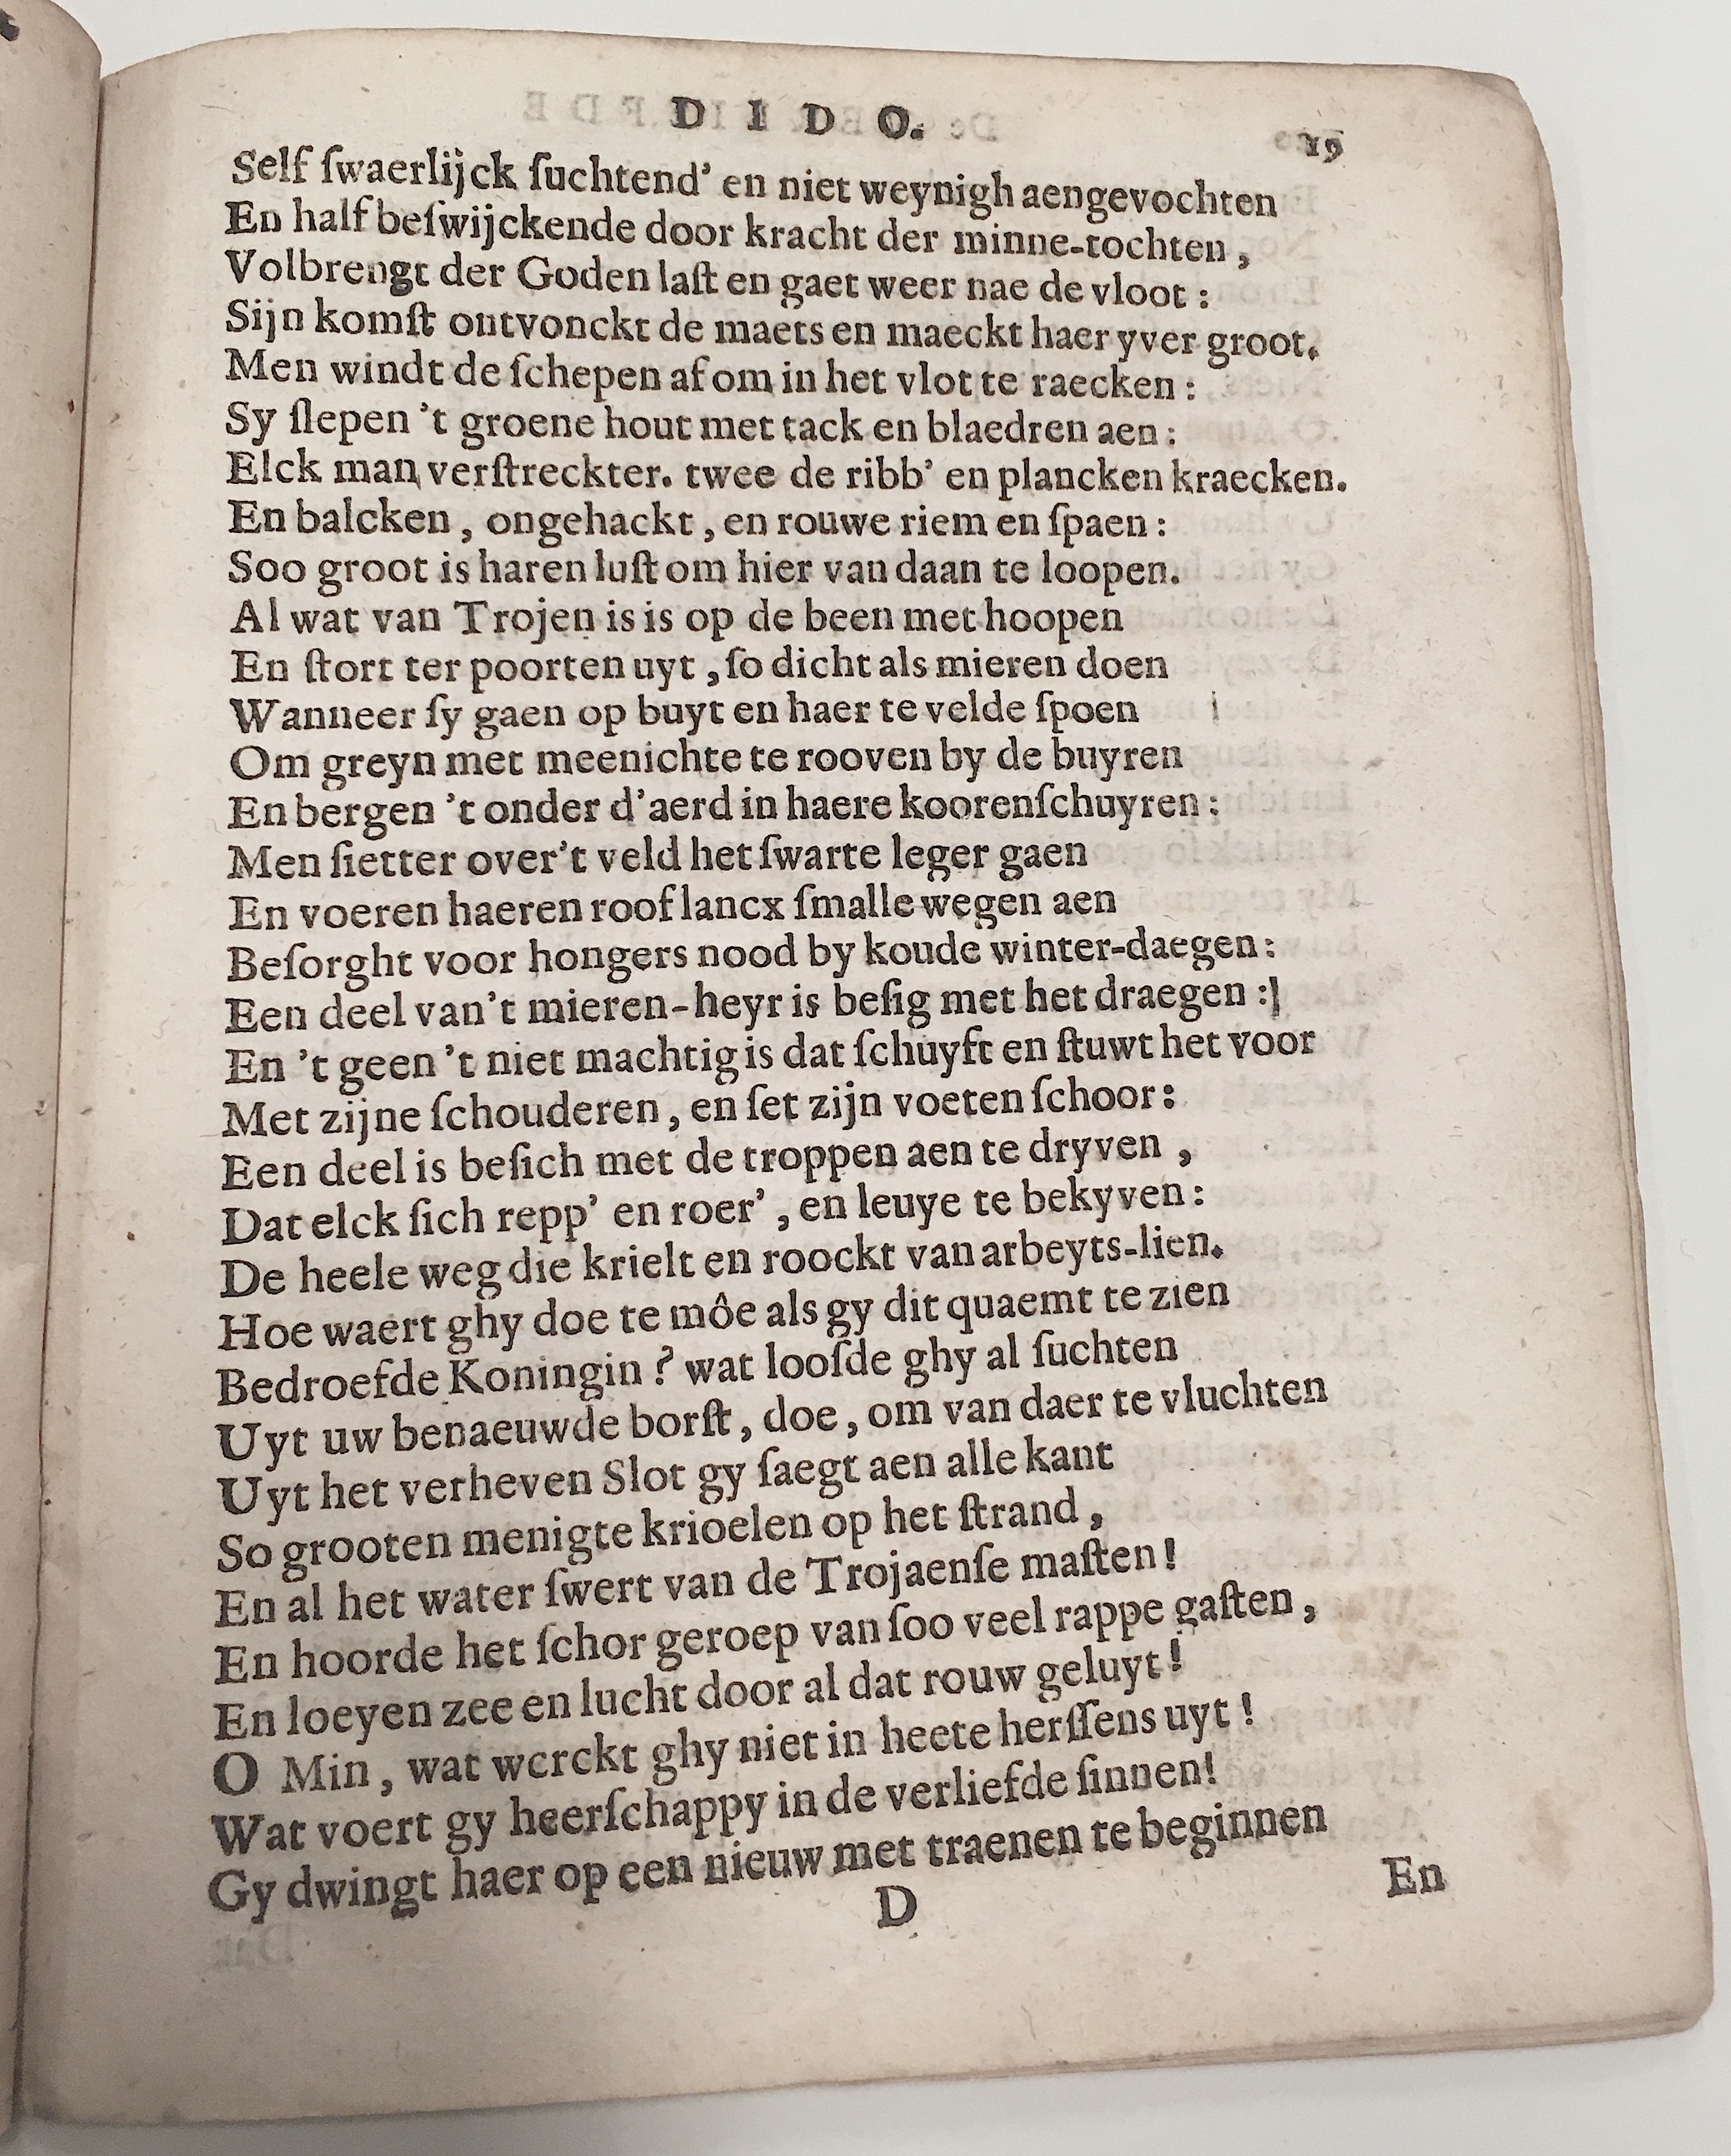 D I D O.
19
Self ſwaerlijck ſuchtend' en niet weynigh aengevochten
En half beſwijckende door kracht der minne-tochten,
Volbrengt der Goden laſt en gaet weer nae de vloot:
Sijn komſt ontvonckt de maets en maeckt haer yver groot.
Men windt de ſchepen af om in het vlot te raecken:
Sy ſlepen 't groene hout met tack en blaedren aen:
Elck man verſtreckter. twee de ribb' en plancken kraecken.
En balcken, ongehackt, en rouwe riem en ſpaen:
Soo groot is haren luſt om hier van daan te loopen.
Al wat van Trojen is is op de been met hoopen
En ſtort ter poorten uyt, ſo dicht als mieren doen
Wanneer ſy gaen op buyt en haer te velde ſpoen
Om greyn met meenichte te rooven by de buyren
En bergen 't onder d'aerd in haere koorenſchuyren:
Men ſietter over't veld het ſwarte leger gaen
En voeren haeren roof lancx ſmalle wegen aen
Beſorght voor hongers nood by koude winter-daegen:
Een deel van't mieren-heyr is beſig met het draegen:
En 't geen 't niet machtig is dat ſchuyft en ſtuwt het voor
Met zijne ſchouderen, en ſet zijn voeten ſchoor:
Een deel is beſich met de troppen aen te dryven,
Dat elck ſich repp' en roer', en leuye te bekyven:
De heele weg die krielt en roockt van arbeyts-lien.
Hoe waert ghy doe te môe als gy dit quaemt te zien
Bedroefde Koningin? wat looſde ghy al ſuchten
Uyt uw benaeuwde borſt, doe, om van daer te vluchten
Uyt het verheven Slot gy ſaegt aen alle kant
So grooten menigte krioelen op het ſtrand,
En al het water ſwert van de Trojaenſe maſten!
En hoorde het ſchor geroep van ſoo veel rappe gaſten,
En loeyen zee en lucht door al dat rouw geluyt!
O Min, wat werckt ghy niet in heete herſſens uyt!
Wat voert gy heerſchappy in de verliefde ſinnen!
Gy dwingt haer op een nieuw met traenen te beginnen
D
En